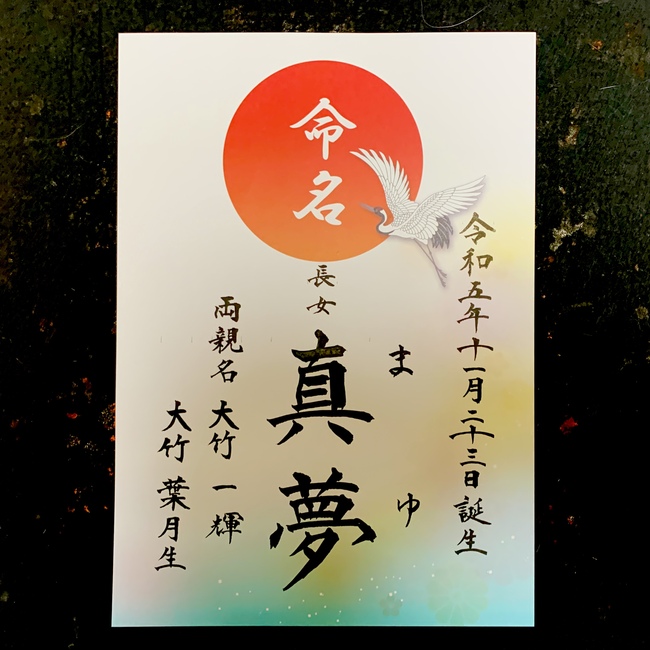 命名
令和五年十一月二十三日誕生
長女
まゆ
真夢
両親名 大竹 一輝
大竹 葉月生